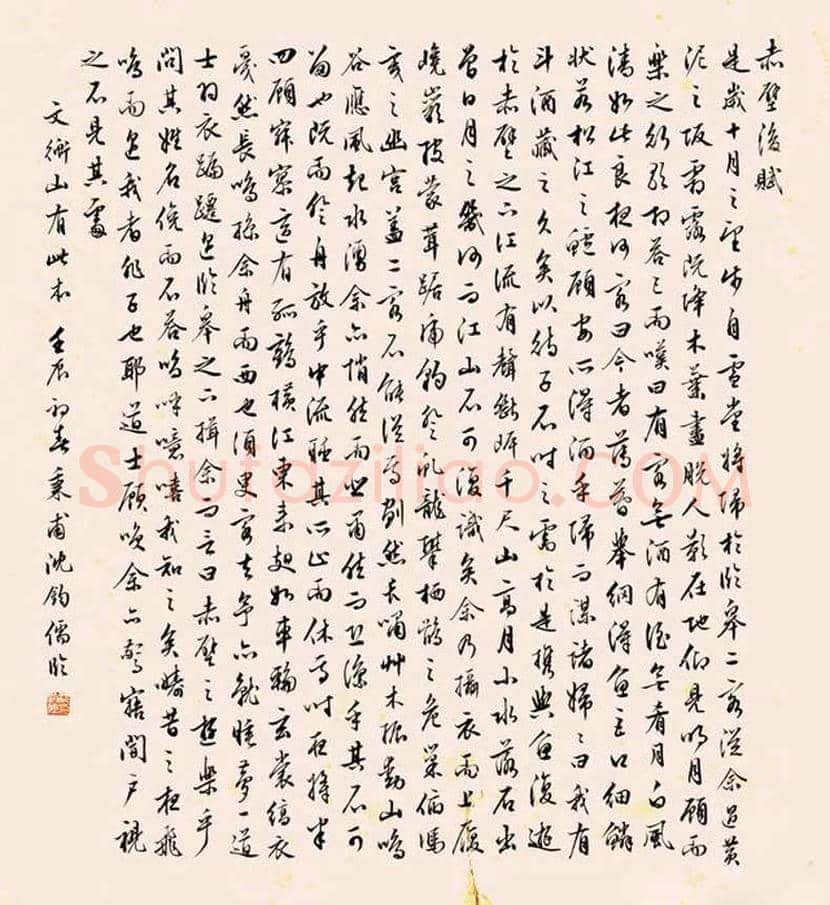 赤壁後賦
是歲十月之望步自雪堂將歸於臨皋二客從余過黃
泥之坂霜露既降木葉盡脫人影在地仰見明月顧而
樂之行歌相答已而嘆曰有客無酒有酒無肴月白風
清如此良夜何客曰今者薄暮舉網得魚巨口細鱗
狀若松江之鱸顧安所得酒乎歸而謀諸婦〻曰我有
斗酒藏之久矣以待子不時之需於是携與魚復遊
於赤壁之下江流有聲斷岸千尺山高月小水落石出
曾日月之幾何而江山不可復識矣余乃攝衣而上履
巉巖披蒙茸踞虎豹登虬龍攀栖鶻之危巢俯馮
夷之幽宮蓋二客不能從焉劃然長嘯艸木振動山鳴
谷應風起水湧余亦悄然而悲肅然而恐凜乎其不可
留也既而登舟放乎中流聽其所止而休焉時夜將半
四顧寂寥適有孤鶴橫江東來翅如車輪玄裳縞衣
戛然長鳴掠余舟而西也須臾客去余亦就睡夢一道
士羽衣蹁躚過臨皋之下揖余而言曰赤壁之遊樂乎
問其姓名俛而不答嗚呼噫嘻我知之矣疇昔之夜飛
鳴而過我者非子也耶道士顧笑余亦驚寤開戶視
之不見其處
文衡山有此本 壬辰初春秉甫沈鈞儒臨
Shufaziliao.COM